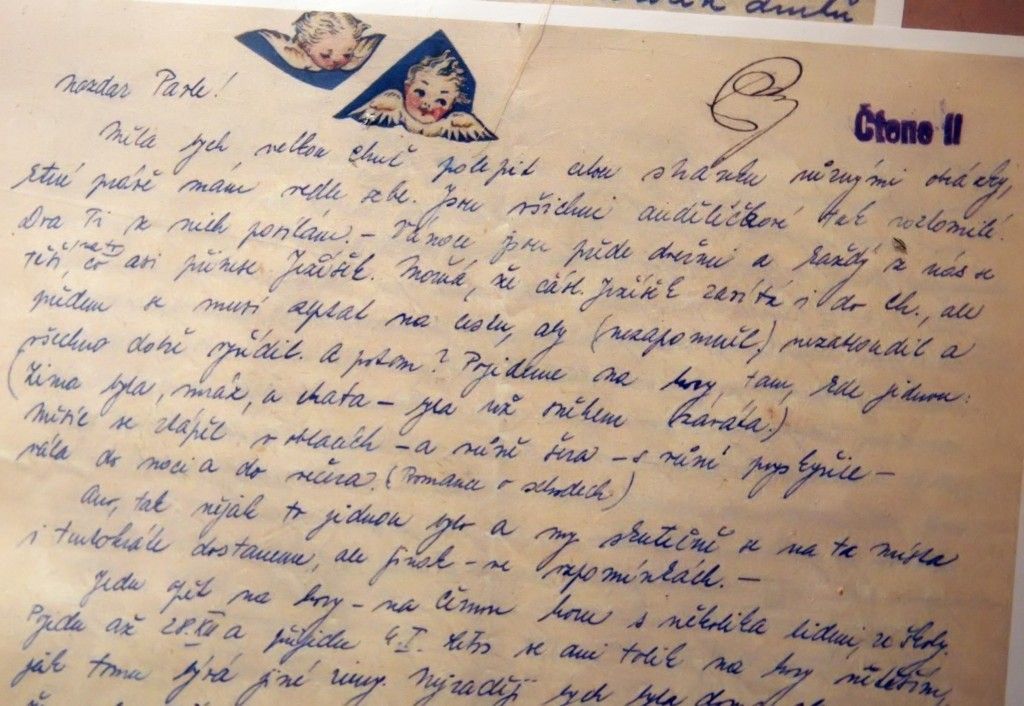 Nazdar Pavle!
Čteno II
Měla bych velkou chuť polepit celou stránku různými obrázky,
které právě mám vedle sebe. Jsou všichni andělíčkové tak rozlomilé.
Dva Ti z nich posílám. – Vánoce jsou přede dveřmi a každý z nás se
těší na to, co asi přinese Ježíšek. Možná, že část. Ježíšek zavítá i do Ch., ale
předem se musí zeptat na cestu, aby (nezapomněl) nezabloudil a
všechno dobře vyřídil. A potom? Pojedeme na hory tam, kde jednou:
(Zima byla, mráz, a chata – byla už sněhem zavátá.)
Měsíc se zlápěl v oblacích – a vůně šera – s vůní pryskyřice –
vála do noci a do večera. (Romance o schodech)
Ano, tak nějak to jednou bylo a my skutečně se na ta místa
i tentokráte dostaneme, ale jinak – ve vzpomínkách. –
Jedu zpět na hory – na Černou horu s několika lidmi ze školy.
Pojedu až 28.XII a přijedu 4.I. Letos se ani tolik na hory netěším,
jak tomu bývá jiné zimy. Nejraději bych byla